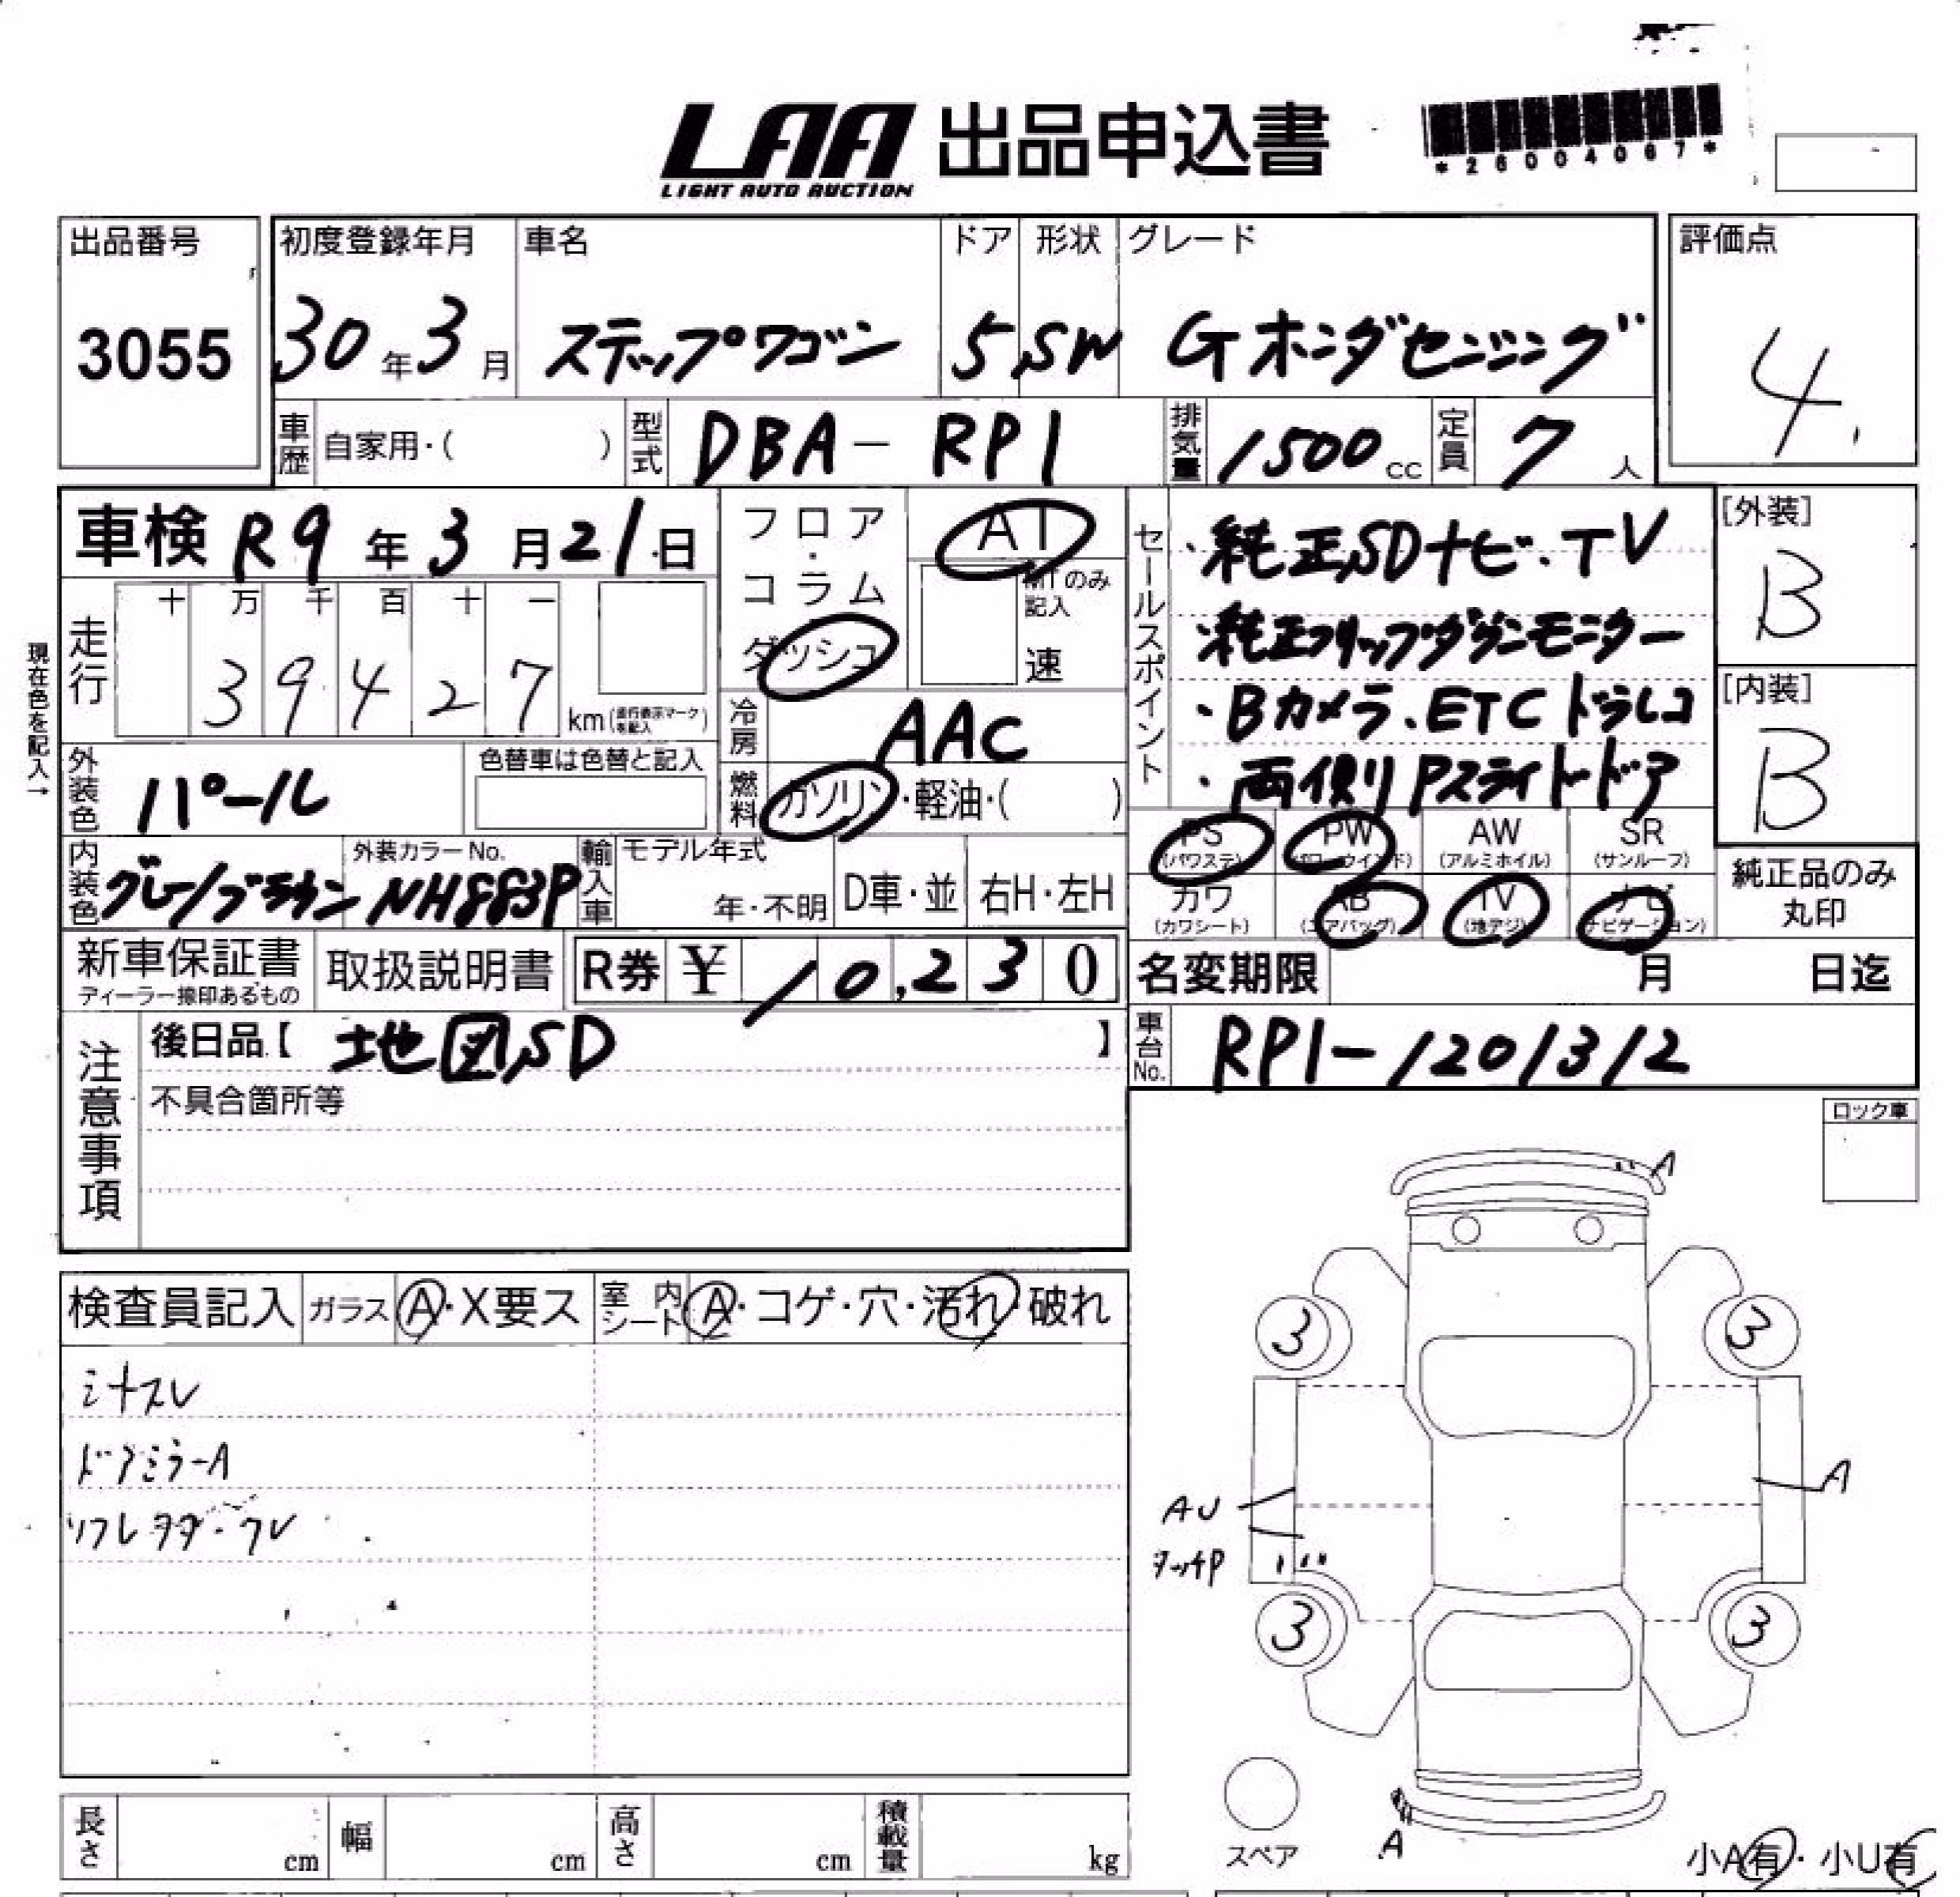 LAA 出品申込書
LIGHT AUTO AUCTION
*26004067*
出品番号
3055
初度登録年月
30年3月
車名
ステップワゴン
ドア
5
形状
SW
グレード
Gホンダセンシング
評価点
4.
車歴 自家用・( )
型式 DBA-RP1
排気量 1500cc
定員 7人
車検 R9年3月21日
フロア・コラム
ダッシュ
AT
MTのみ記入
速
セールスポイント
・純正SDナビ・TV
・純正フリップダウンモニター
・Bカメラ、ETC ドラレコ
・両側Pスライドドア
[外装]
B
[内装]
B
現在色を記入→
走行
十 万 千 百 十 一
3 9 4 2 7 km(走行表示マークを記入)
冷房 AAC
燃料 ガソリン・軽油・( )
外装色 パール
色替車は色替と記入
内装色 グレー/ブラウン
外装カラーNo.
NH883P
輸入車
モデル年式
年・不明
D車・並
右H・左H
PS
(パワステ)
PW
(パワーウインド)
AW
(アルミホイル)
SR
(サンルーフ)
カワ
(カワシート)
AB
(エアバッグ)
TV
(地デジ)
ナビ
(ナビゲーション)
純正品のみ
丸印
新車保証書
ディーラー捺印あるもの
取扱説明書
R券 ¥ 10,230
名変期限 月 日迄
注意事項
後日品【 地図SD 】
不具合箇所等
車台No. RP1-1201312
ロック車
検査員記入
ガラス A・X要ス
室内シート A・コゲ・穴・汚れ・破れ
ミナスレ
ドアミラーA
A
3
3
A
AU
タッチP
3
3
スペア
A
小A有・小U有
長さ cm
幅 cm
高さ cm
積載量 kg